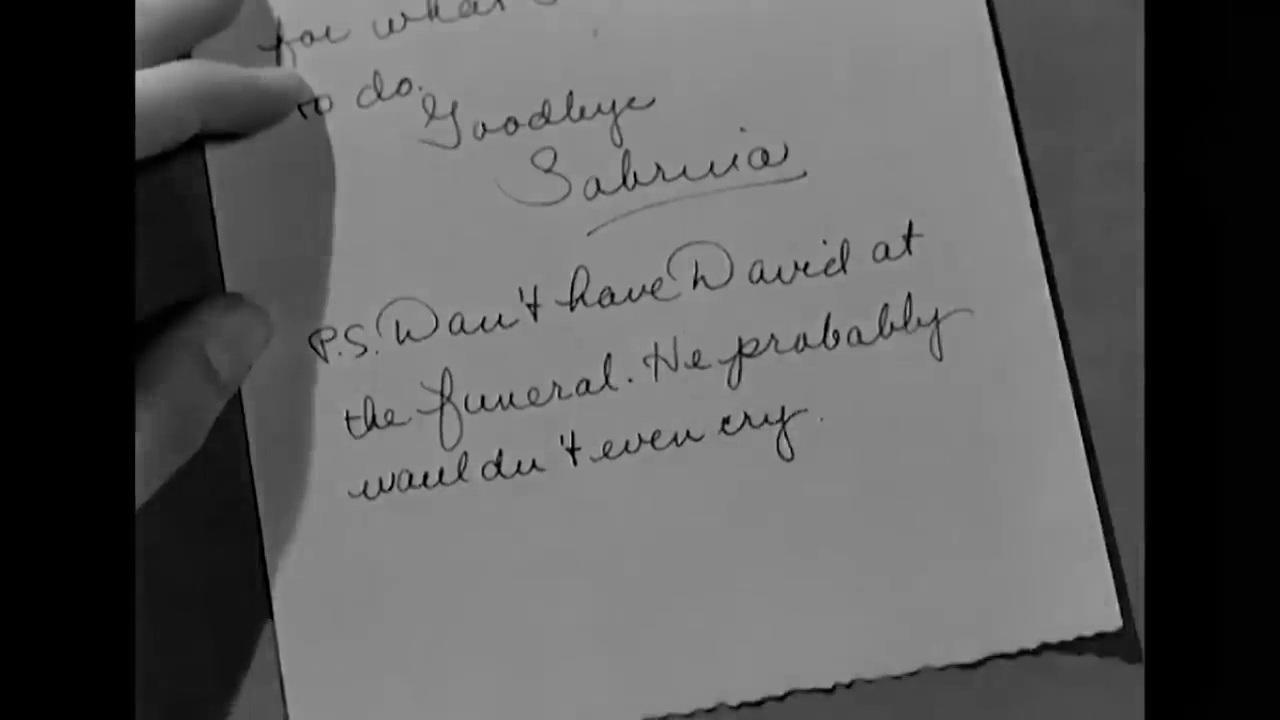 for what
to do.
Goodbye
Sabrina
P.S. Don't have David at
the funeral. He probably
wouldn't even cry.